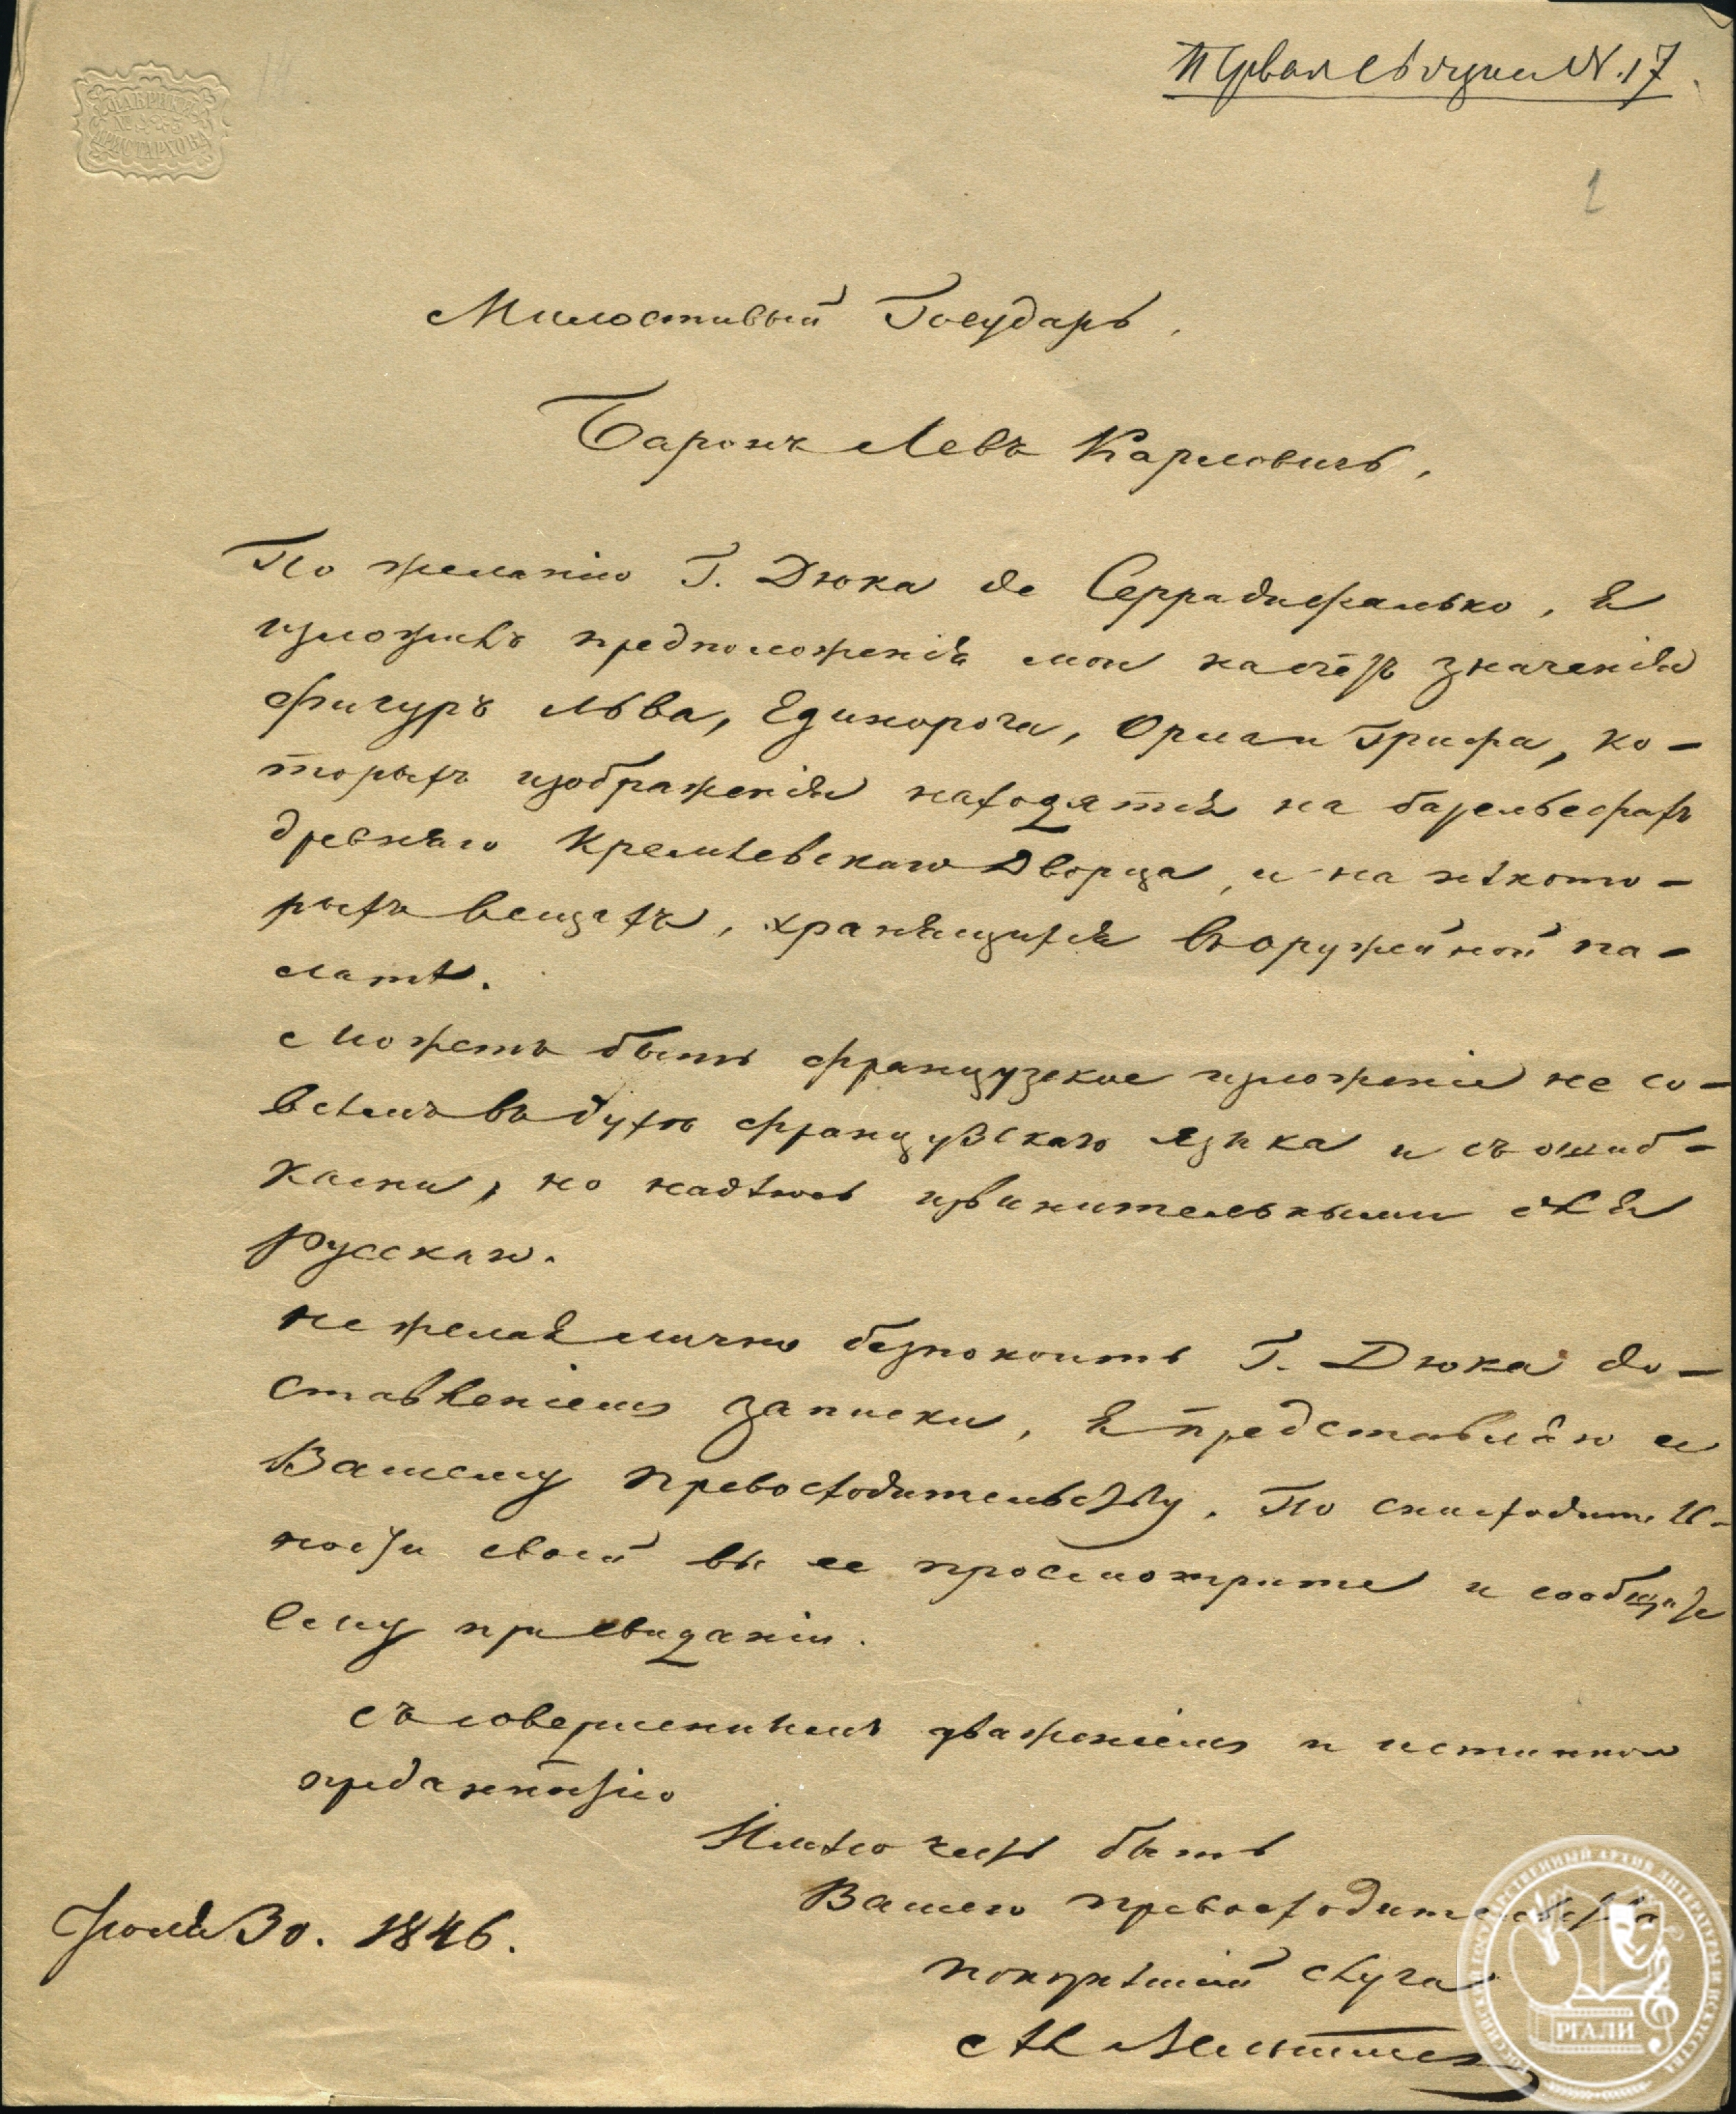 ФАБРИКИ
АРИСТАРХОВА
Первая N. 17
1
Милостивый Государь,
Баронъ Левъ Карловичь,
По желанію Г. Дюка де Серрадифалько, я
изложилъ предположенія мои насчетъ значенія
фигуръ Льва, Единорога, Орла и Грифа, ко-
торыхъ изображенія находятся на барельефахъ
древняго Кремлевскаго Дворца, и на нѣкото-
рыхъ вещахъ, хранящихся въ оружейной па-
латѣ.
Можетъ быть французское изложеніе не со-
всѣмъ въ духѣ французскаго языка и съ ошиб-
ками, но надѣюсь извинительными для
Русскаго.
Не желая лично безпокоить Г. Дюка до-
ставленіемъ записки, я представляю ее
Вашему превосходительству. По снисходитель-
ности своей вы ее просмотрите и сообщите
ему при свиданіи.
Съ совершеннымъ уваженіемъ и истинною
преданностію
Имѣю честь быть
Вашего превосходительства
покорнѣйшій слуга
А. Вельтманъ
Іюля 30. 1846.
РОССИЙСКИЙ ГОСУДАРСТВЕННЫЙ АРХИВ ЛИТЕРАТУРЫ И ИСКУССТВА
РГАЛИ